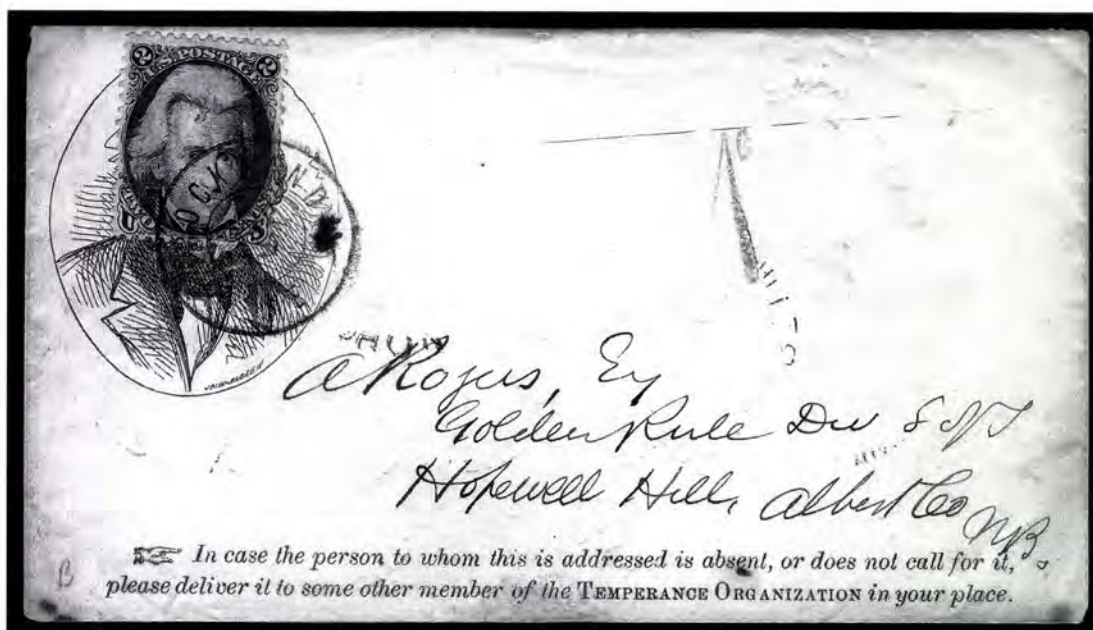 2 U.S. POSTAGE 2
A Rogers, Esq
Golden Rule Div S of T
Hopewell Hill, Albert Co
NB
In case the person to whom this is addressed is absent, or does not call for it,
please deliver it to some other member of the TEMPERANCE ORGANIZATION in your place.